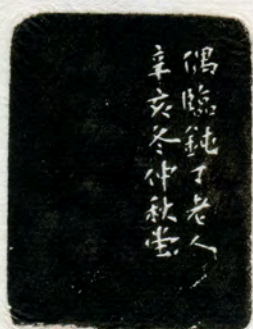 偶臨鈍丁老人
辛亥冬仲秋堂